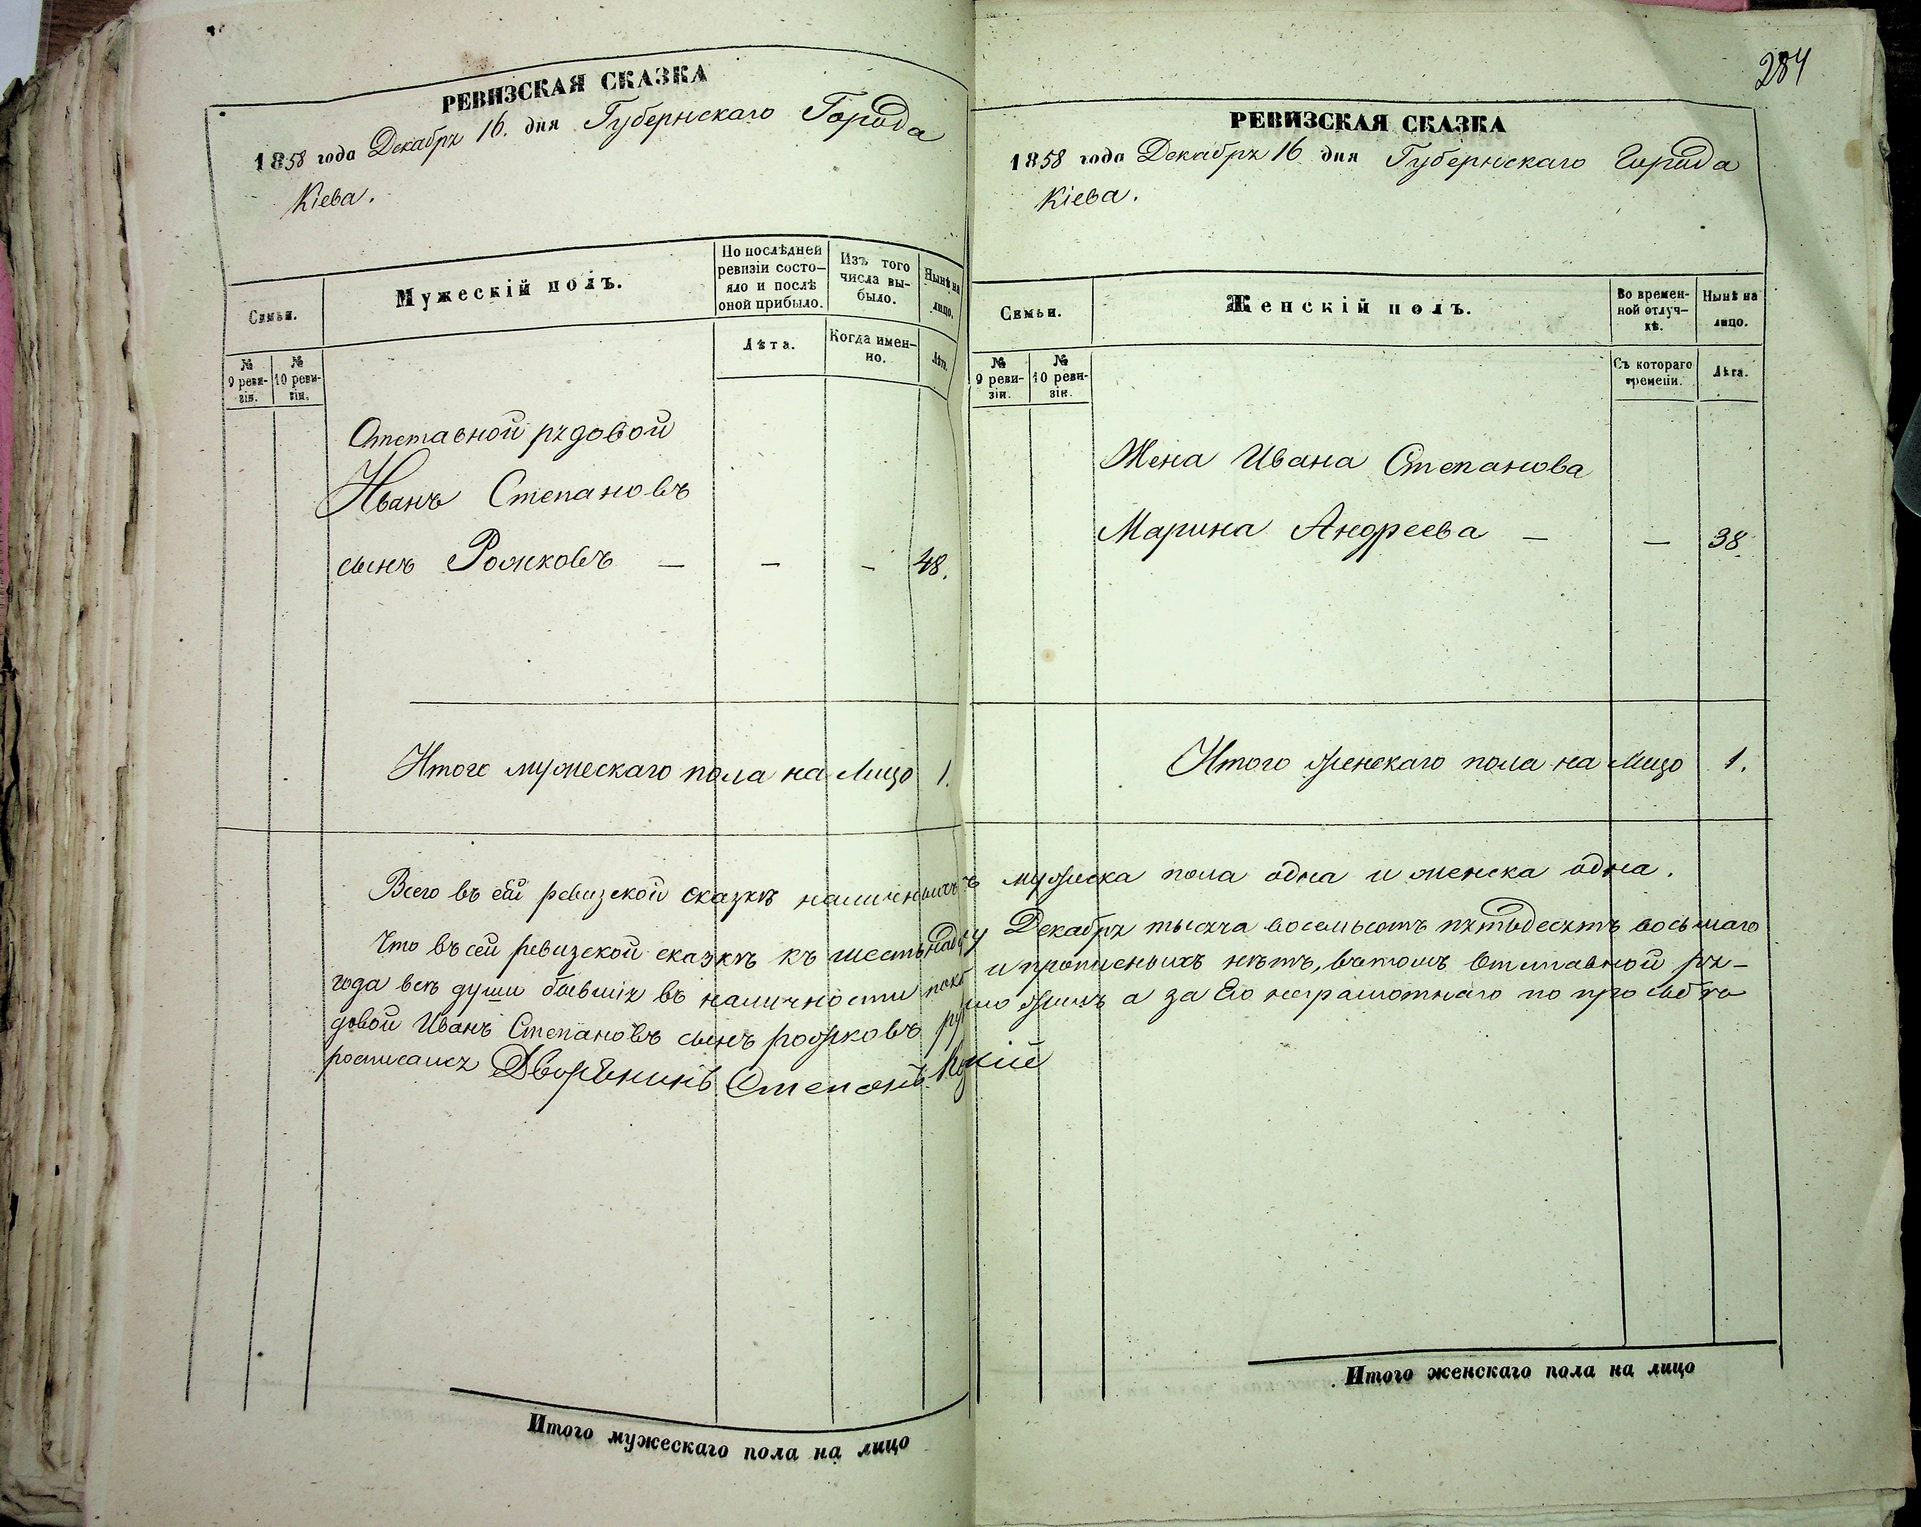 284
РЕВИЗСКАЯ СКАЗКА
1858 года Декабря 16. дня Губернскаго Города
Кіева.
Семьи.
Мужескій полъ.
По послѣдней
ревизіи состо-
яло и послѣ
оной прибыло.
Изъ того
числа вы-
было.
Нынѣ на
лицо.
№
9 реви-
зіи.
№
10 реви-
зіи.
Лѣта.
Когда имен-
но.
Лѣта.
Отставной рядовой
Иванъ Степановъ
сынъ Рожковъ — — - 48.
Итого мужескаго пола на лицо 1.
РЕВИЗСКАЯ СКАЗКА
1858 года Декабря 16 дня Губернскаго Города
Кіева.
Семьи.
Женскій полъ.
Во времен-
ной отлуч-
кѣ.
Нынѣ на
лицо.
№
9 реви-
зіи.
№
10 реви-
зіи.
Съ котораго
времени.
Лѣта.
Жена Ивана Степанова
Марина Андреева — — 38.
Итого женскаго пола на лицо 1.
Всего въ сей ревизской сказкѣ мужеска пола одна и женска одна.
Что въ сей ревизской сказкѣ къ Декабря тысяча восемьсотъ пятьдесятъ восьмаго
года всѣ души бывшія въ наличности и прописныхъ нѣтъ, вътомъ Отставной ря-
довой Иванъ Степановъ сынъ рожковъ а за Его неграмотнаго по просьбѣ
росписался Дворянинъ Степанъ
Итого мужескаго пола на лицо
Итого женскаго пола на лицо